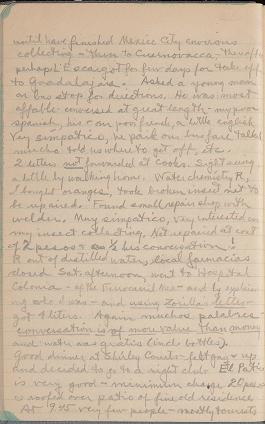 until have finished Mexico City environs
collecting - then to Cuernavaca, thereafter
perhaps L'Escargot for few days for take off
to Guadalajara. Asked a young man
on bus stop for directions. He was most
affable - conversed at great length - my poor
spanish, his poor french, a little english
Very simpatico, he paid our bus fare, talked
mucho told us where to get off, etc.
2 letters not forwarded at Cooks. Sightseeing
a little by walking home. Water chemistry R,
I bought oranges, took broken insect net to
be repaired. Found small repair shop with
welder. Muy simpatico, very interested in
my insect collecting. Net repaired at cost
of 2 pesos + ½ hr conversation.
R out of distilled water, local farmacias
closed Sat. afternoon, went to Hospital
Colonia - of the Ferrocarril Mex - and by explain
ing who I was - and using Zorilla's letter -
got 4 liters. Again muchos palabras -
conversation is of more value than money
and water was gratis (incl. bottles).
Good dinner at Shirley Courts - felt gay &
and decided to go to a night club El Patio
is very good - minimum charge 20 pesos
is roofed over patio of fine old residence
At 9:45 very few people - mostly tourists